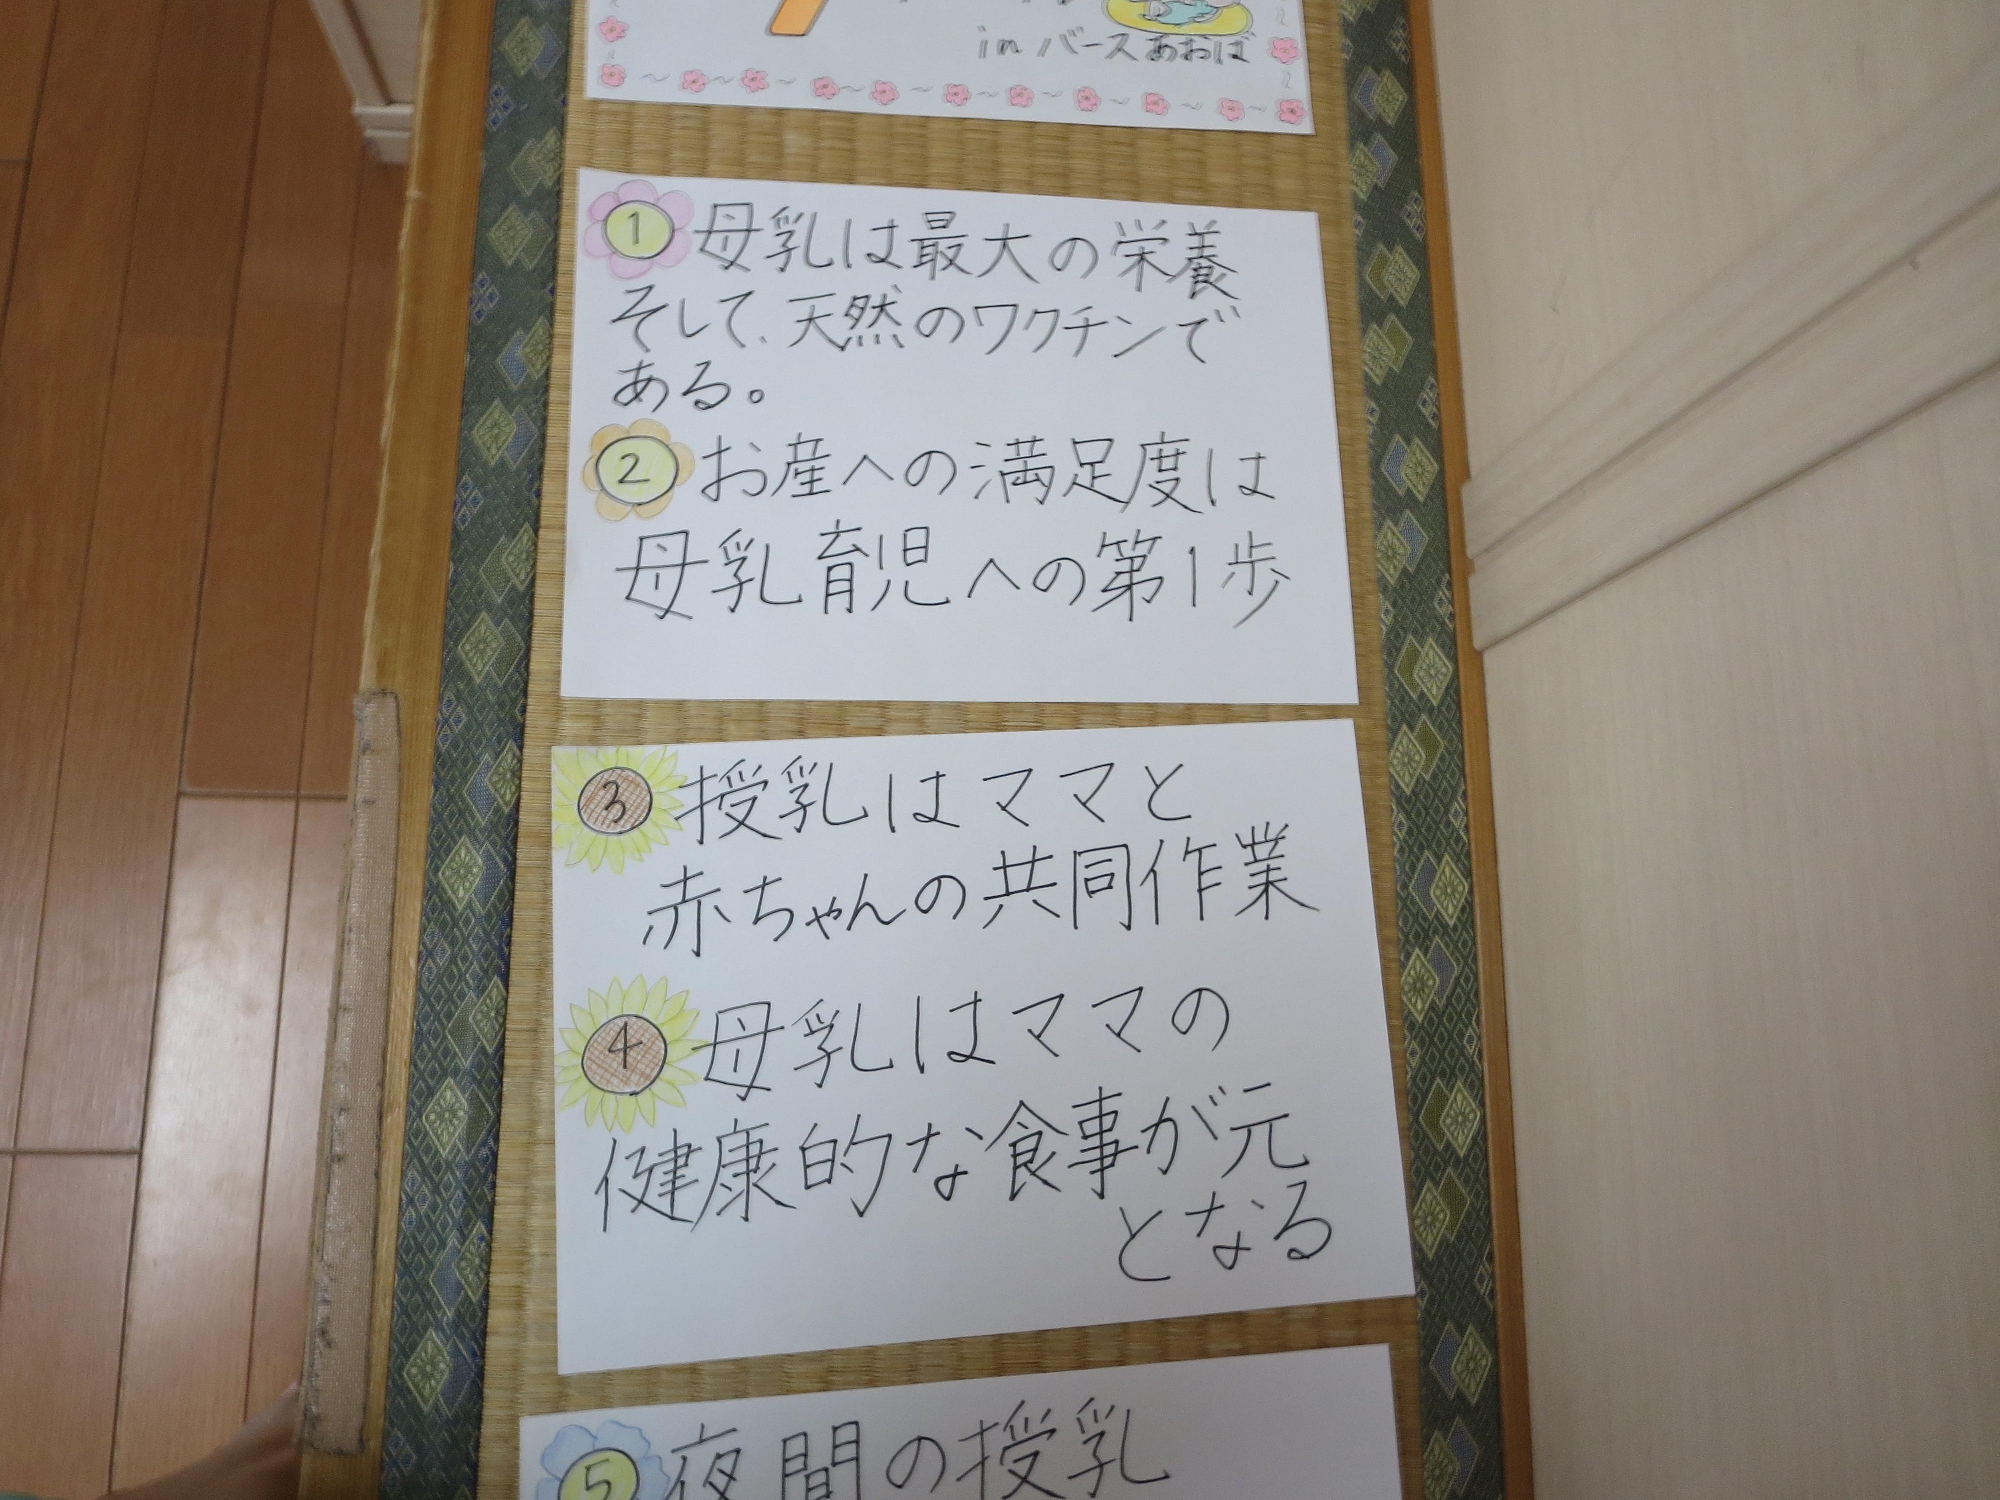 in バースあおば
1 母乳は最大の栄養
そして、天然のワクチンで
ある。
2 お産への満足度は
母乳育児への第1歩
3 授乳はママと
赤ちゃんの共同作業
4 母乳はママの
健康的な食事が元
となる
5 夜間の授乳